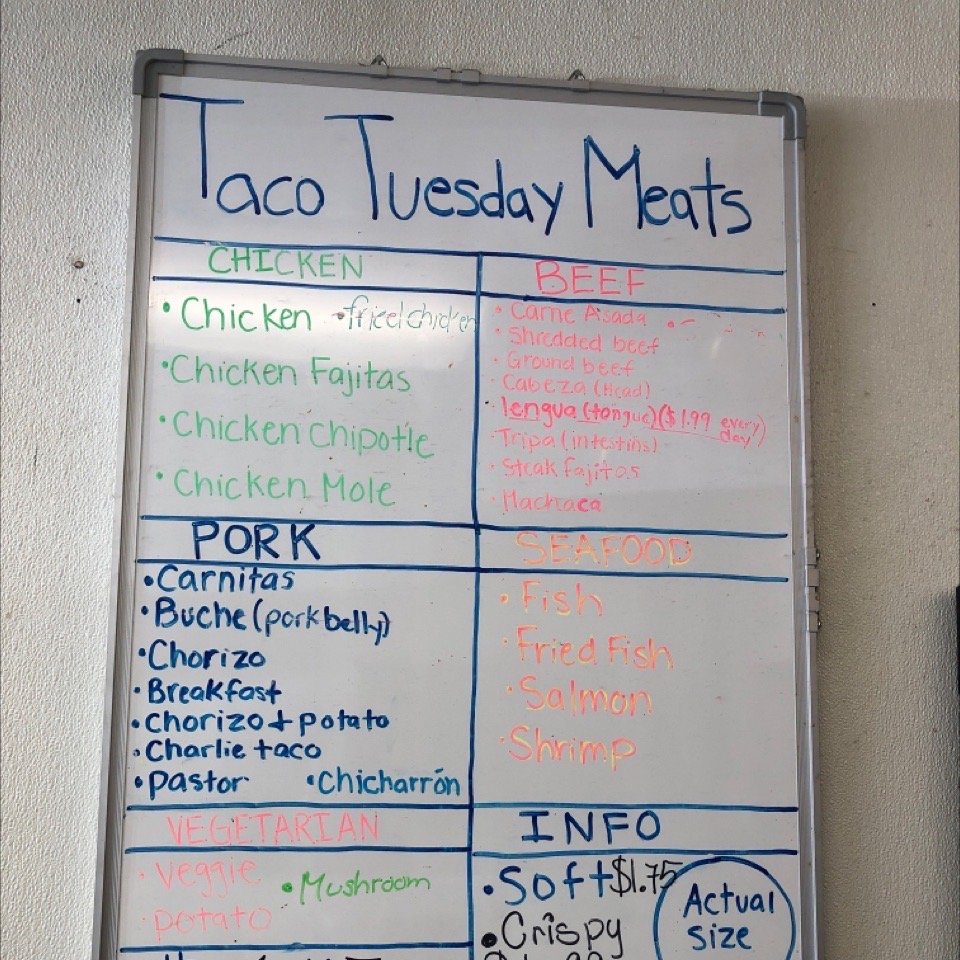 Taco Tuesday Meats
CHICKEN
• Chicken • fried chicken
• Chicken Fajitas
• Chicken Chipotle
• Chicken Mole
BEEF
• Carne Asada
• Shredded beef
• Ground beef
• Cabeza (Head)
• lengua (tongue) ($1.99 every day)
• Tripa (intestins)
• Steak fajitas
• Machaca
PORK
• Carnitas
• Buche (pork belly)
• Chorizo
• Breakfast
• Chorizo + potato
• Charlie taco
• Pastor • Chicharrón
SEAFOOD
• Fish
• Fried Fish
• Salmon
• Shrimp
VEGETARIAN
• Veggie • Mushroom
• potato
INFO
• Soft $1.75
• Crispy
Actual
Size